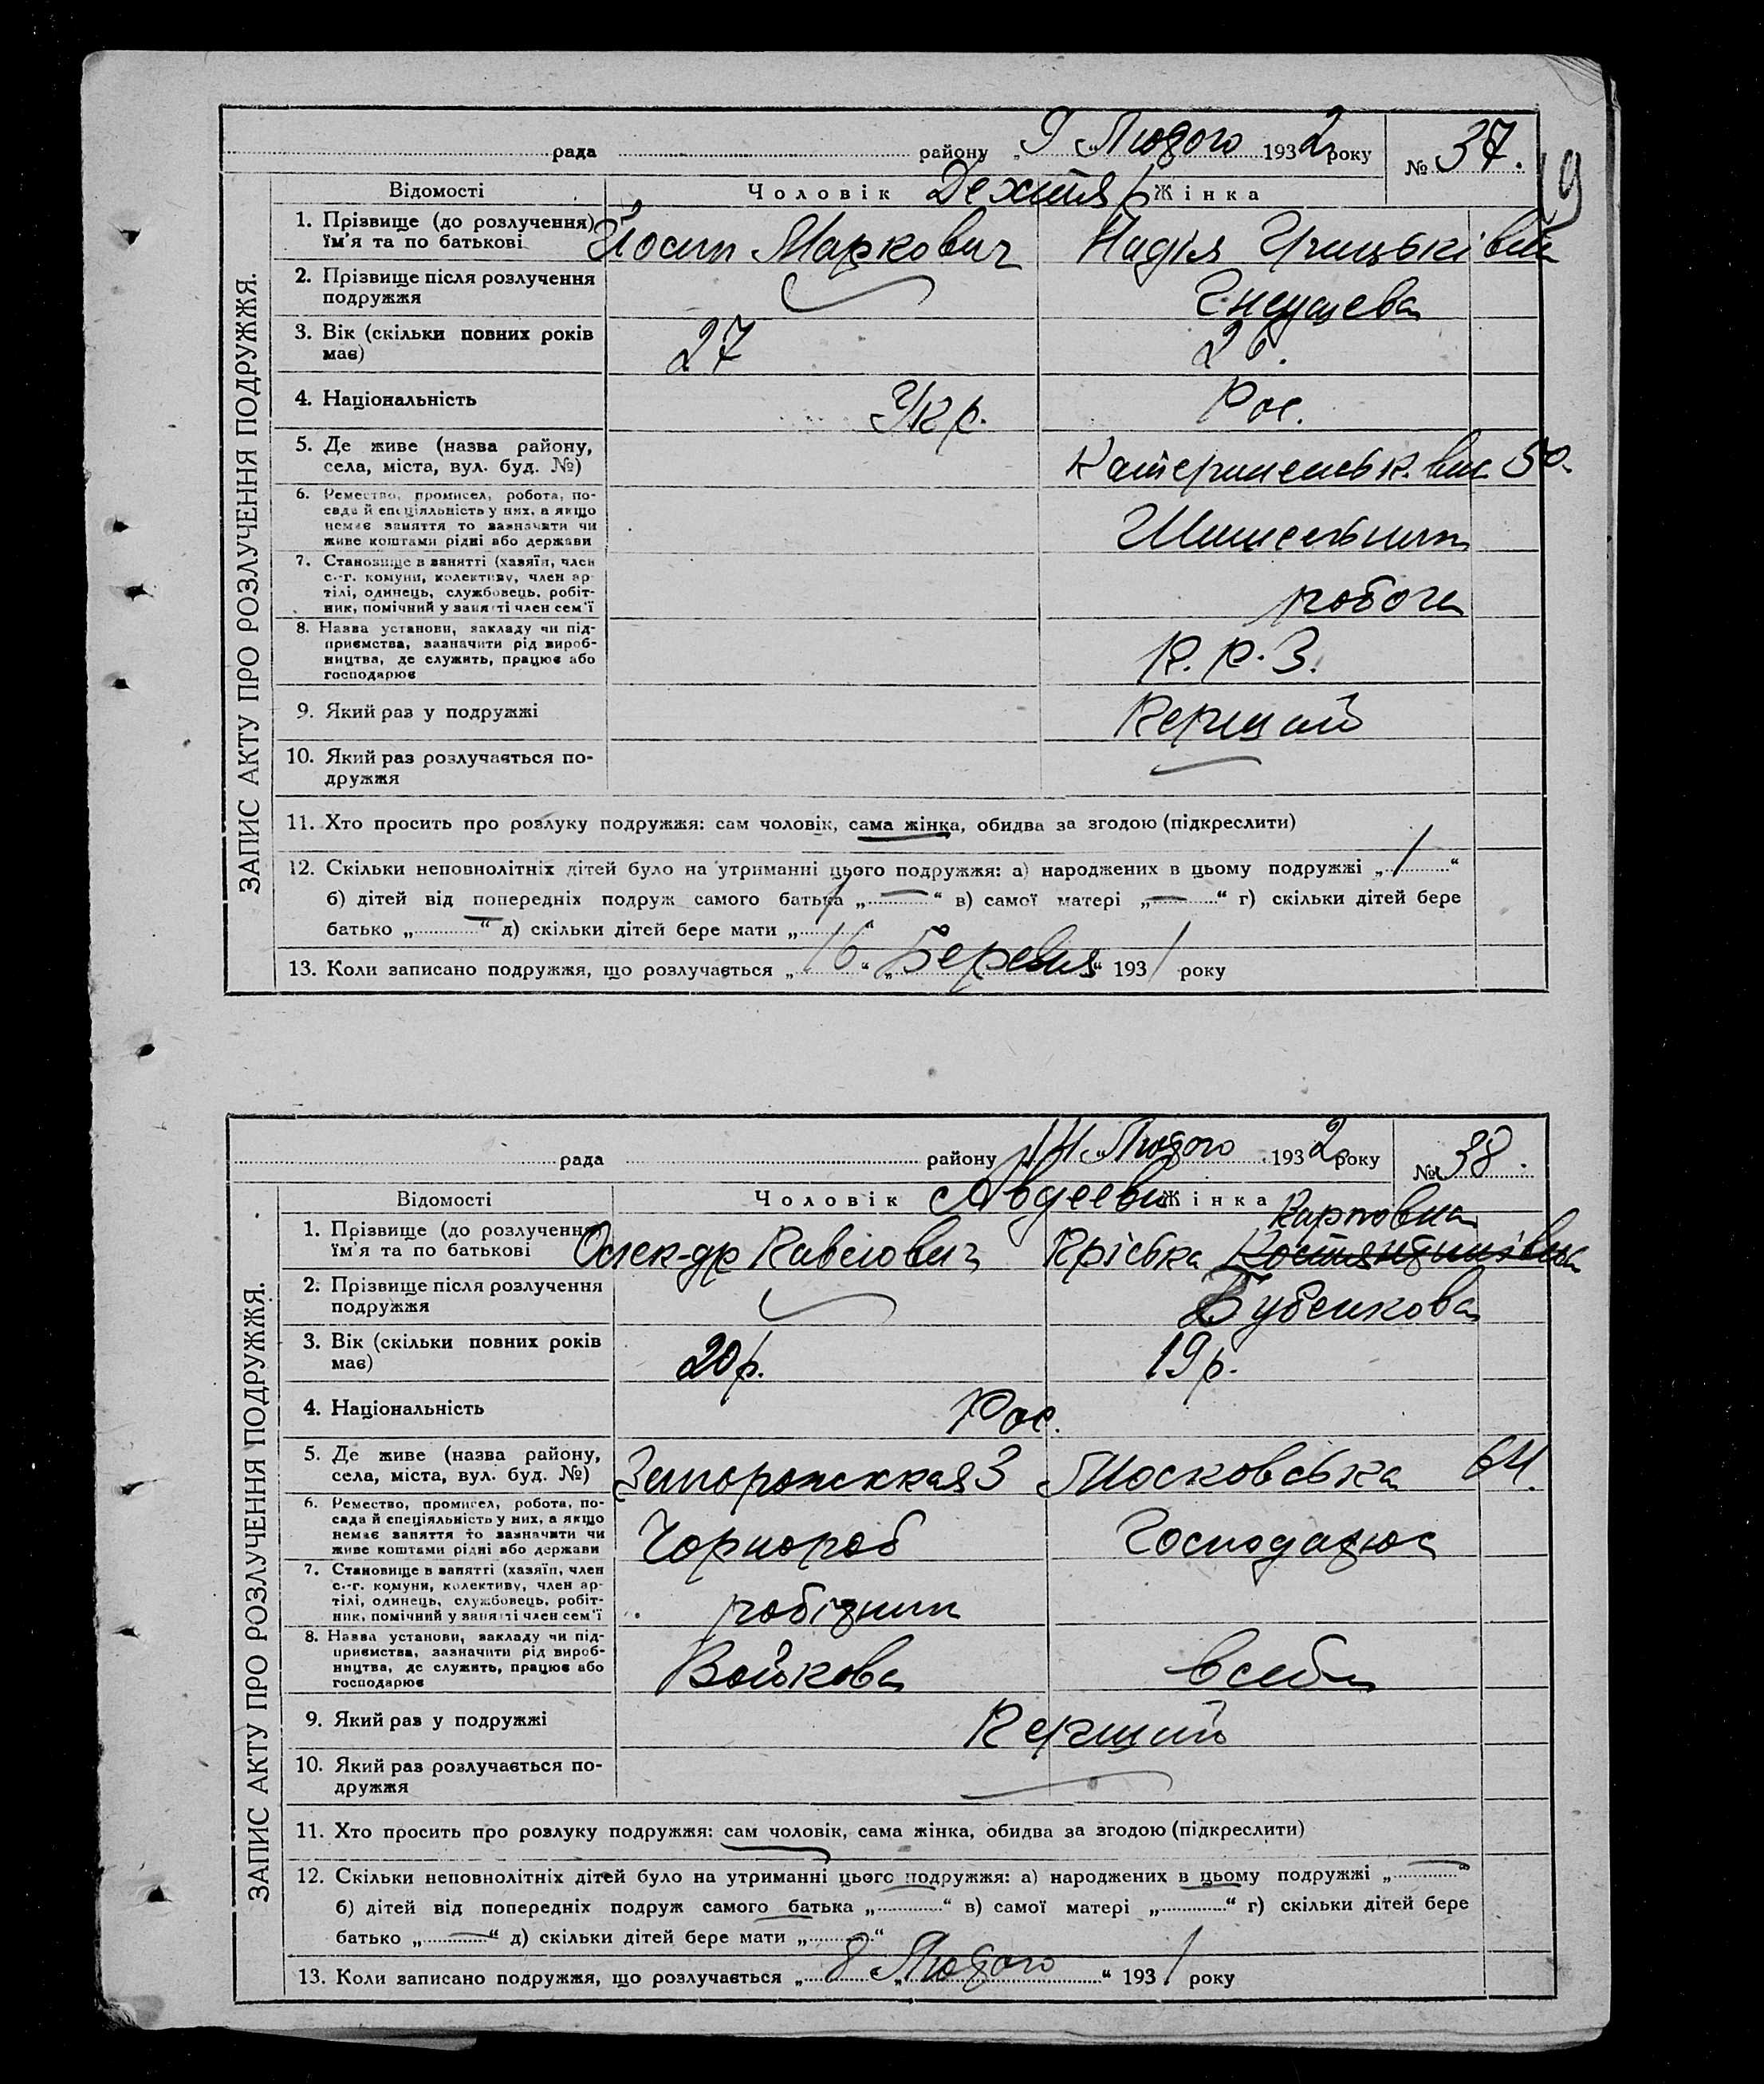 рада району „ 9 „ Лютого 1932 року № 37.
19
Відомості Чоловік Жінка
1. Прізвище (до розлучення) їм'я та по батькові
Йосип Маркович Надія Грицьківна
2. Прізвище після розлучення подружжя
3. Вік (скільки повних років має)
27 26.
4. Національність
Укр. Рос.
5. Де живе (назва району, села, міста, вул. буд. №)
50.
6. Ремество, промисел, робота, по-
сада й спеціяльність у них, а якщо
немає заняття то зазначити чи
живе коштами рідні або держави
7. Становище в занятті (хазяїн, член
с.-г. комуни, колективу, член ар-
тілі, одинець, службовець, робіт-
ник, помічний у занятті член сем'ї
робоча
8. Назва установи, закладу чи під-
приємства, зазначити рід вироб-
ництва, де служить, працює або
господарює
К.Р.З.
9. Який раз у подружжі
Перший
10. Який раз розлучається по-
дружжя
11. Хто просить про розлуку подружжя: сам чоловік, сама жінка, обидва за згодою (підкреслити)
12. Скільки неповнолітніх дітей було на утриманні цього подружжя: а) народжених в цьому подружжі „ 1 “
б) дітей від попередніх подруж самого батька „ — “ в) самої матері „ — “ г) скільки дітей бере
батько „ — “ д) скільки дітей бере мати „ 1 “
13. Коли записано подружжя, що розлучається „ 16 “ „ Березня “ 1931 року
ЗАПИС АКТУ ПРО РОЗЛУЧЕННЯ ПОДРУЖЖЯ.
рада району „ 14 „ Лютого 1932 року № 38.
Авдеевы
Відомості Чоловік Жінка
Карповна
1. Прізвище (до розлучення) їм'я та по батькові
Олек-др Павлович Крiська Костянтинівна
2. Прізвище після розлучення подружжя
Бубенкова
3. Вік (скільки повних років має)
20 р. 19 р.
4. Національність
Рос.
5. Де живе (назва району, села, міста, вул. буд. №)
Запорожская 3 Московська 64.
6. Ремество, промисел, робота, по-
сада й спеціяльність у них, а якщо
немає заняття то зазначити чи
живе коштами рідні або держави
Чорнороб Господарює
7. Становище в занятті (хазяїн, член
с.-г. комуни, колективу, член ар-
тілі, одинець, службовець, робіт-
ник, помічний у занятті член сем'ї
робітник
8. Назва установи, закладу чи під-
приємства, зазначити рід вироб-
ництва, де служить, працює або
господарює
Войкова в себе
9. Який раз у подружжі
Перший
10. Який раз розлучається по-
дружжя
11. Хто просить про розлуку подружжя: сам чоловік, сама жінка, обидва за згодою (підкреслити)
12. Скільки неповнолітніх дітей було на утриманні цього подружжя: а) народжених в цьому подружжі „ — “
б) дітей від попередніх подруж самого батька „ “ в) самої матері „ “ г) скільки дітей бере
батько „ — “ д) скільки дітей бере мати „ “
13. Коли записано подружжя, що розлучається „ 8 “ „ Лютого “ 1931 року
ЗАПИС АКТУ ПРО РОЗЛУЧЕННЯ ПОДРУЖЖЯ.